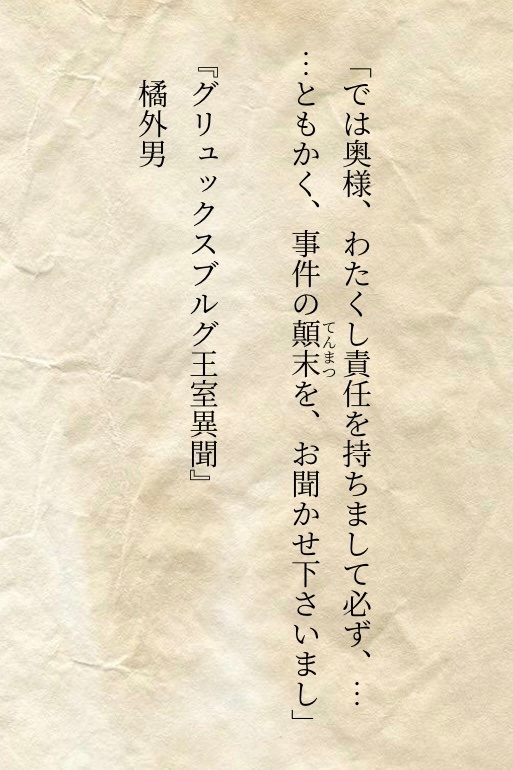 「では奥様、わたくし責任を持ちまして必ず、…
…ともかく、事件の顛末を、お聞かせ下さいまし」
てんまつ
『グリュックスブルグ王室異聞』
橘外男